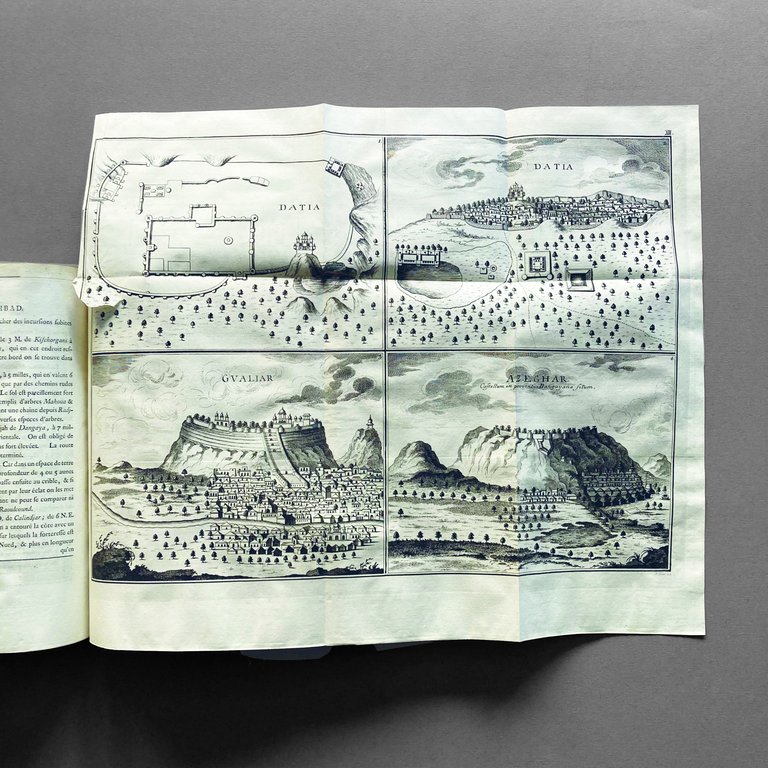 EBAD.
cher des incursions subites
le 3 M. de Kischorgans à
, qui en cet endroit est
tre bord on se trouve dans
, à 5 milles, qui en valent 6
que par des chemins rudes
Le sol est pareillement fort
emplis d'arbres Mahoua &
ent une chaine depuis
verses especes d'arbres.
jah de Dangaya, à 7 mil-
rientale. On est obligé de
us fort élevées. La route
terminé.
Car dans un espace de terre
profondeur de 4 ou 5 aunes
passe ensuite au crible, & si
ent par leur éclat on les met
nt ne peut se comparer ni
Raudcound.
O. de Calindjar; du 6 N. E.
n a entouré la côte avec un
sur lequels la forteresse est
Nord, & plus en longueur
qu'en
XII.
DATIA
DATIA
GVALIAR
AZEGHAR
Castellum in provincia Dangayana situm.